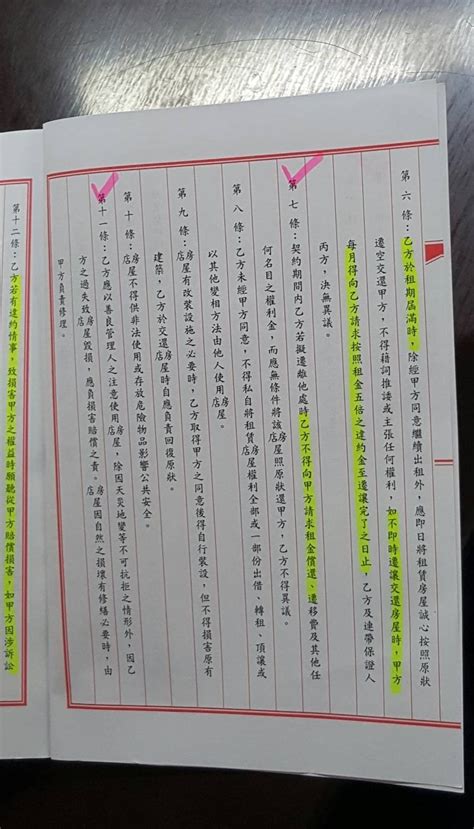 第六條：乙方於租期屆滿時，除經甲方同意繼續出租外，應即日將租賃房屋誠心按照原狀
遷空交還甲方，不得藉詞推諉或主張任何權利，如不即時遷讓交還房屋時，甲方
每月得向乙方請求按照租金五倍之違約金至遷讓完了之日止，乙方及連帶保證人
丙方，決無異議。
第七條：契約期間內乙方若擬遷離他處時乙方不得向甲方請求租金償還、遷移費及其他任
何名目之權利金，而應無條件將該房屋店屋照原狀還甲方，乙方不得異議。
第八條：乙方未經甲方同意，不得私自將租賃房屋店屋權利全部或一部份出借、轉租、頂讓或
以其他變相方法由他人使用房屋店屋。
第九條：房屋店屋有改裝設施之必要時，乙方取得甲方之同意後得自行裝設，但不得損害原有
建築，乙方於交還房屋店屋時自應負責回復原狀。
第十條：房屋店屋不得供非法使用或存放危險物品影響公共安全。
第十一條：乙方應以善良管理人之注意使用房屋店屋，除因天災地變等不可抗拒之情形外，因乙
方之過失致房屋店屋毀損，應負損害賠償之責。房屋店屋因自然之損壞有修繕必要時，由
甲方負責修理。
第十二條：乙方若有違約情事，致損害甲方之權益時願聽從甲方賠償損害，如甲方因涉訴訟